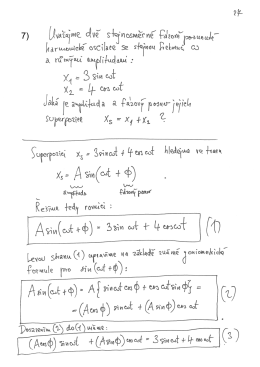 7) Uvažujme dvě stejnosměrné fázově posunuté
harmonické oscilace se stejnou frekvencí ω
a různými amplitudami:
x₁ = 3 sin ωt
x₂ = 4 cos ωt
Jaká je amplituda a fázový posuv jejich
superpozice xₛ = x₁ + x₂ ?
Superpozici xₛ = 3 sin ωt + 4 cos ωt hledejme ve tvaru
xₛ = A sin(ωt + ϕ)
amplituda fázový posuv
Řešíme tedy rovnici:
A sin(ωt + ϕ) = 3 sin ωt + 4 cos ωt (1)
Levou stranu (1) upravíme na základě známé goniometrické
formule pro sin(ωt + ϕ):
A sin(ωt + ϕ) = A{sin ωt cos ϕ + cos ωt sin ϕ} =
= (A cos ϕ) sin ωt + (A sin ϕ) cos ωt (2)
Dosazením (2) do (1) máme:
(A cos ϕ) sin ωt + (A sin ϕ) cos ωt = 3 sin ωt + 4 cos ωt (3)